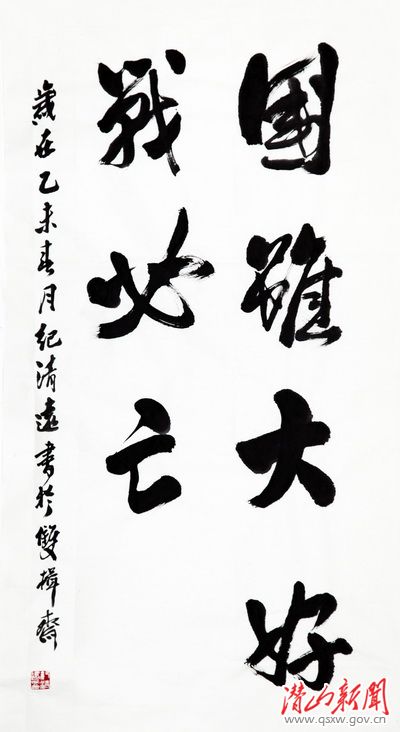 國雖大好
戰必亡
歲在乙未春月紀清遠書於雙揖齋
潜山新聞
www.qsxw.gov.cn